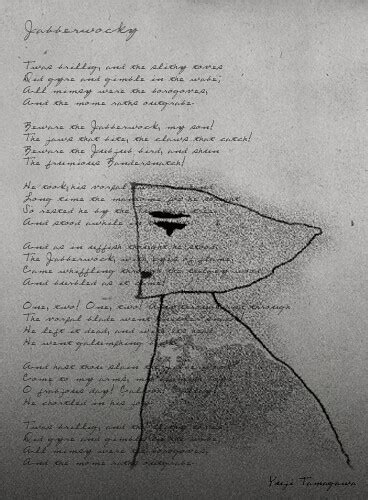 Jabberwocky
Twas brillig, and the slithy toves
Did gyre and gimble in the wabe;
All mimsy were the borogoves,
And the mome raths outgrabe.
Beware the Jabberwock, my son!
The jaws that bite, the claws that catch!
Beware the Jubjub bird, and shun
The frumious Bandersnatch!
He took his vorpal
Long time the manxome foe he so
So rested he by the tree
And stood awhile
And as in uffish thought he stood,
The Jabberwock, with eyes of flame,
Came whiffling through the tulgey wood
And burbled as it came!
One, two! One, two! And through and through
The vorpal blade went
He left it dead, and with its head
He went galumphing
And hast thou slain the
Come to my arms, my
O frabjous day!
He chortled in his joy
Twas brillig, and the slithy toves
Did gyre and gimble in the wabe
All mimsy were the borogoves
And the mome raths outgrabe
Tamagawa